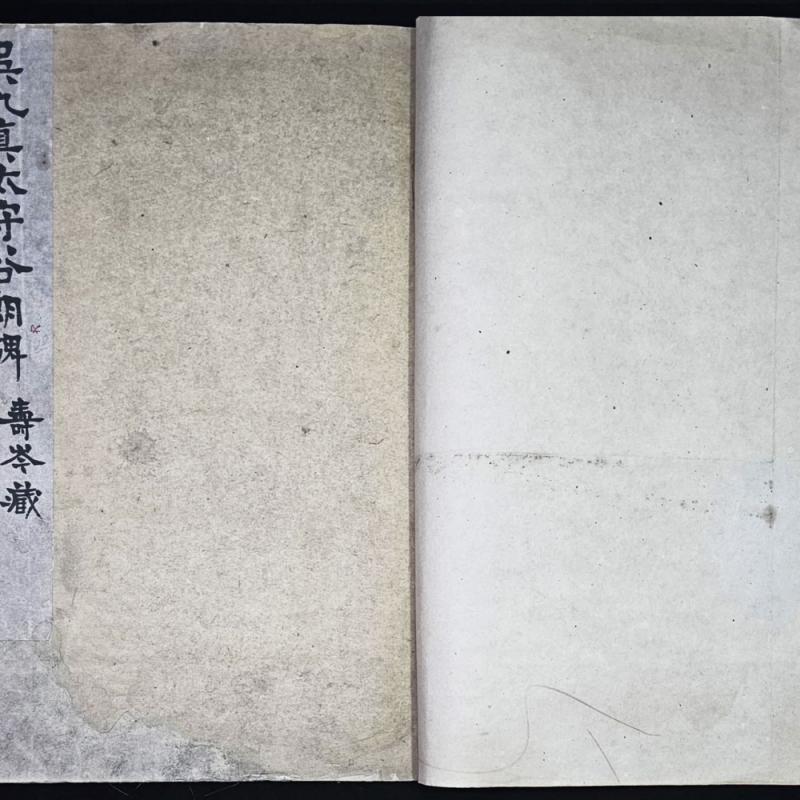 吳九真太守谷朗碑
壽岑藏